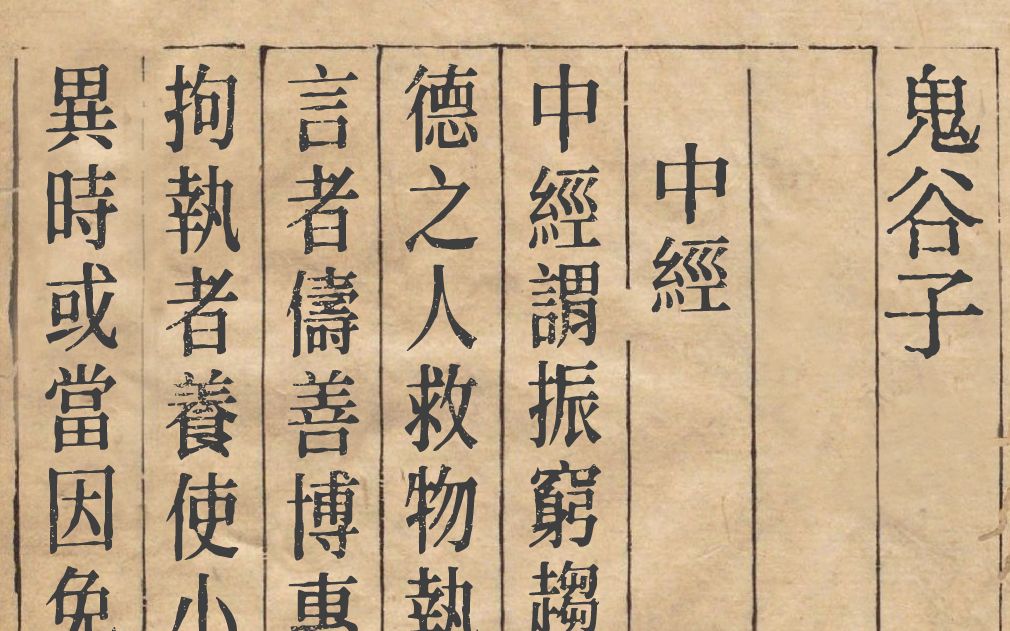 鬼谷子
中經
中經謂振窮趨
德之人救物執
言者儔善博惠
拘執者養使小
異時或當因免